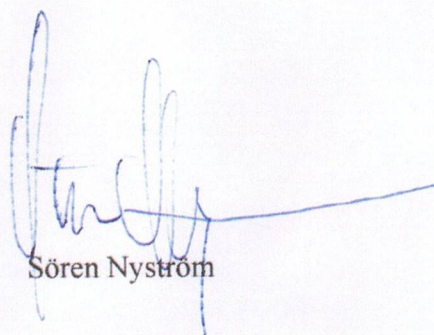 Sören Nyström